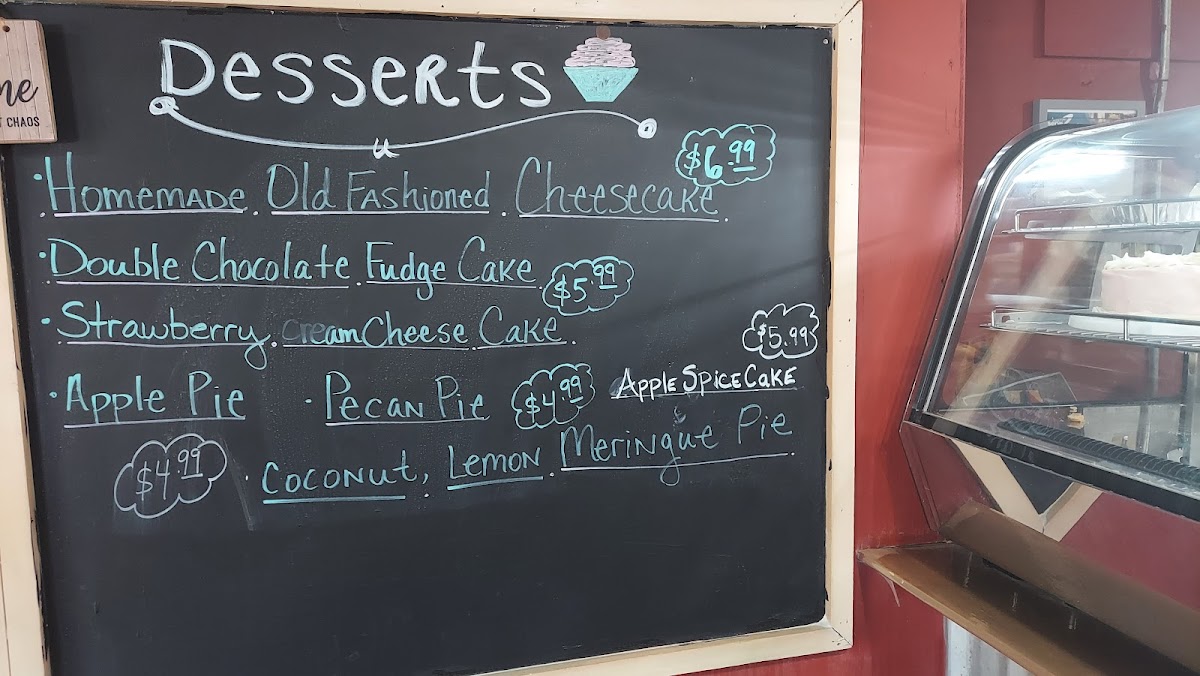 me
T CHAOS
Desserts
$6.99
• Homemade Old Fashioned Cheesecake
• Double Chocolate Fudge Cake $5.99
• Strawberry creamCheese Cake
$5.99
• Apple Pie • Pecan Pie $4.99 Apple Spice Cake
$4.99 • Coconut, Lemon Meringue Pie